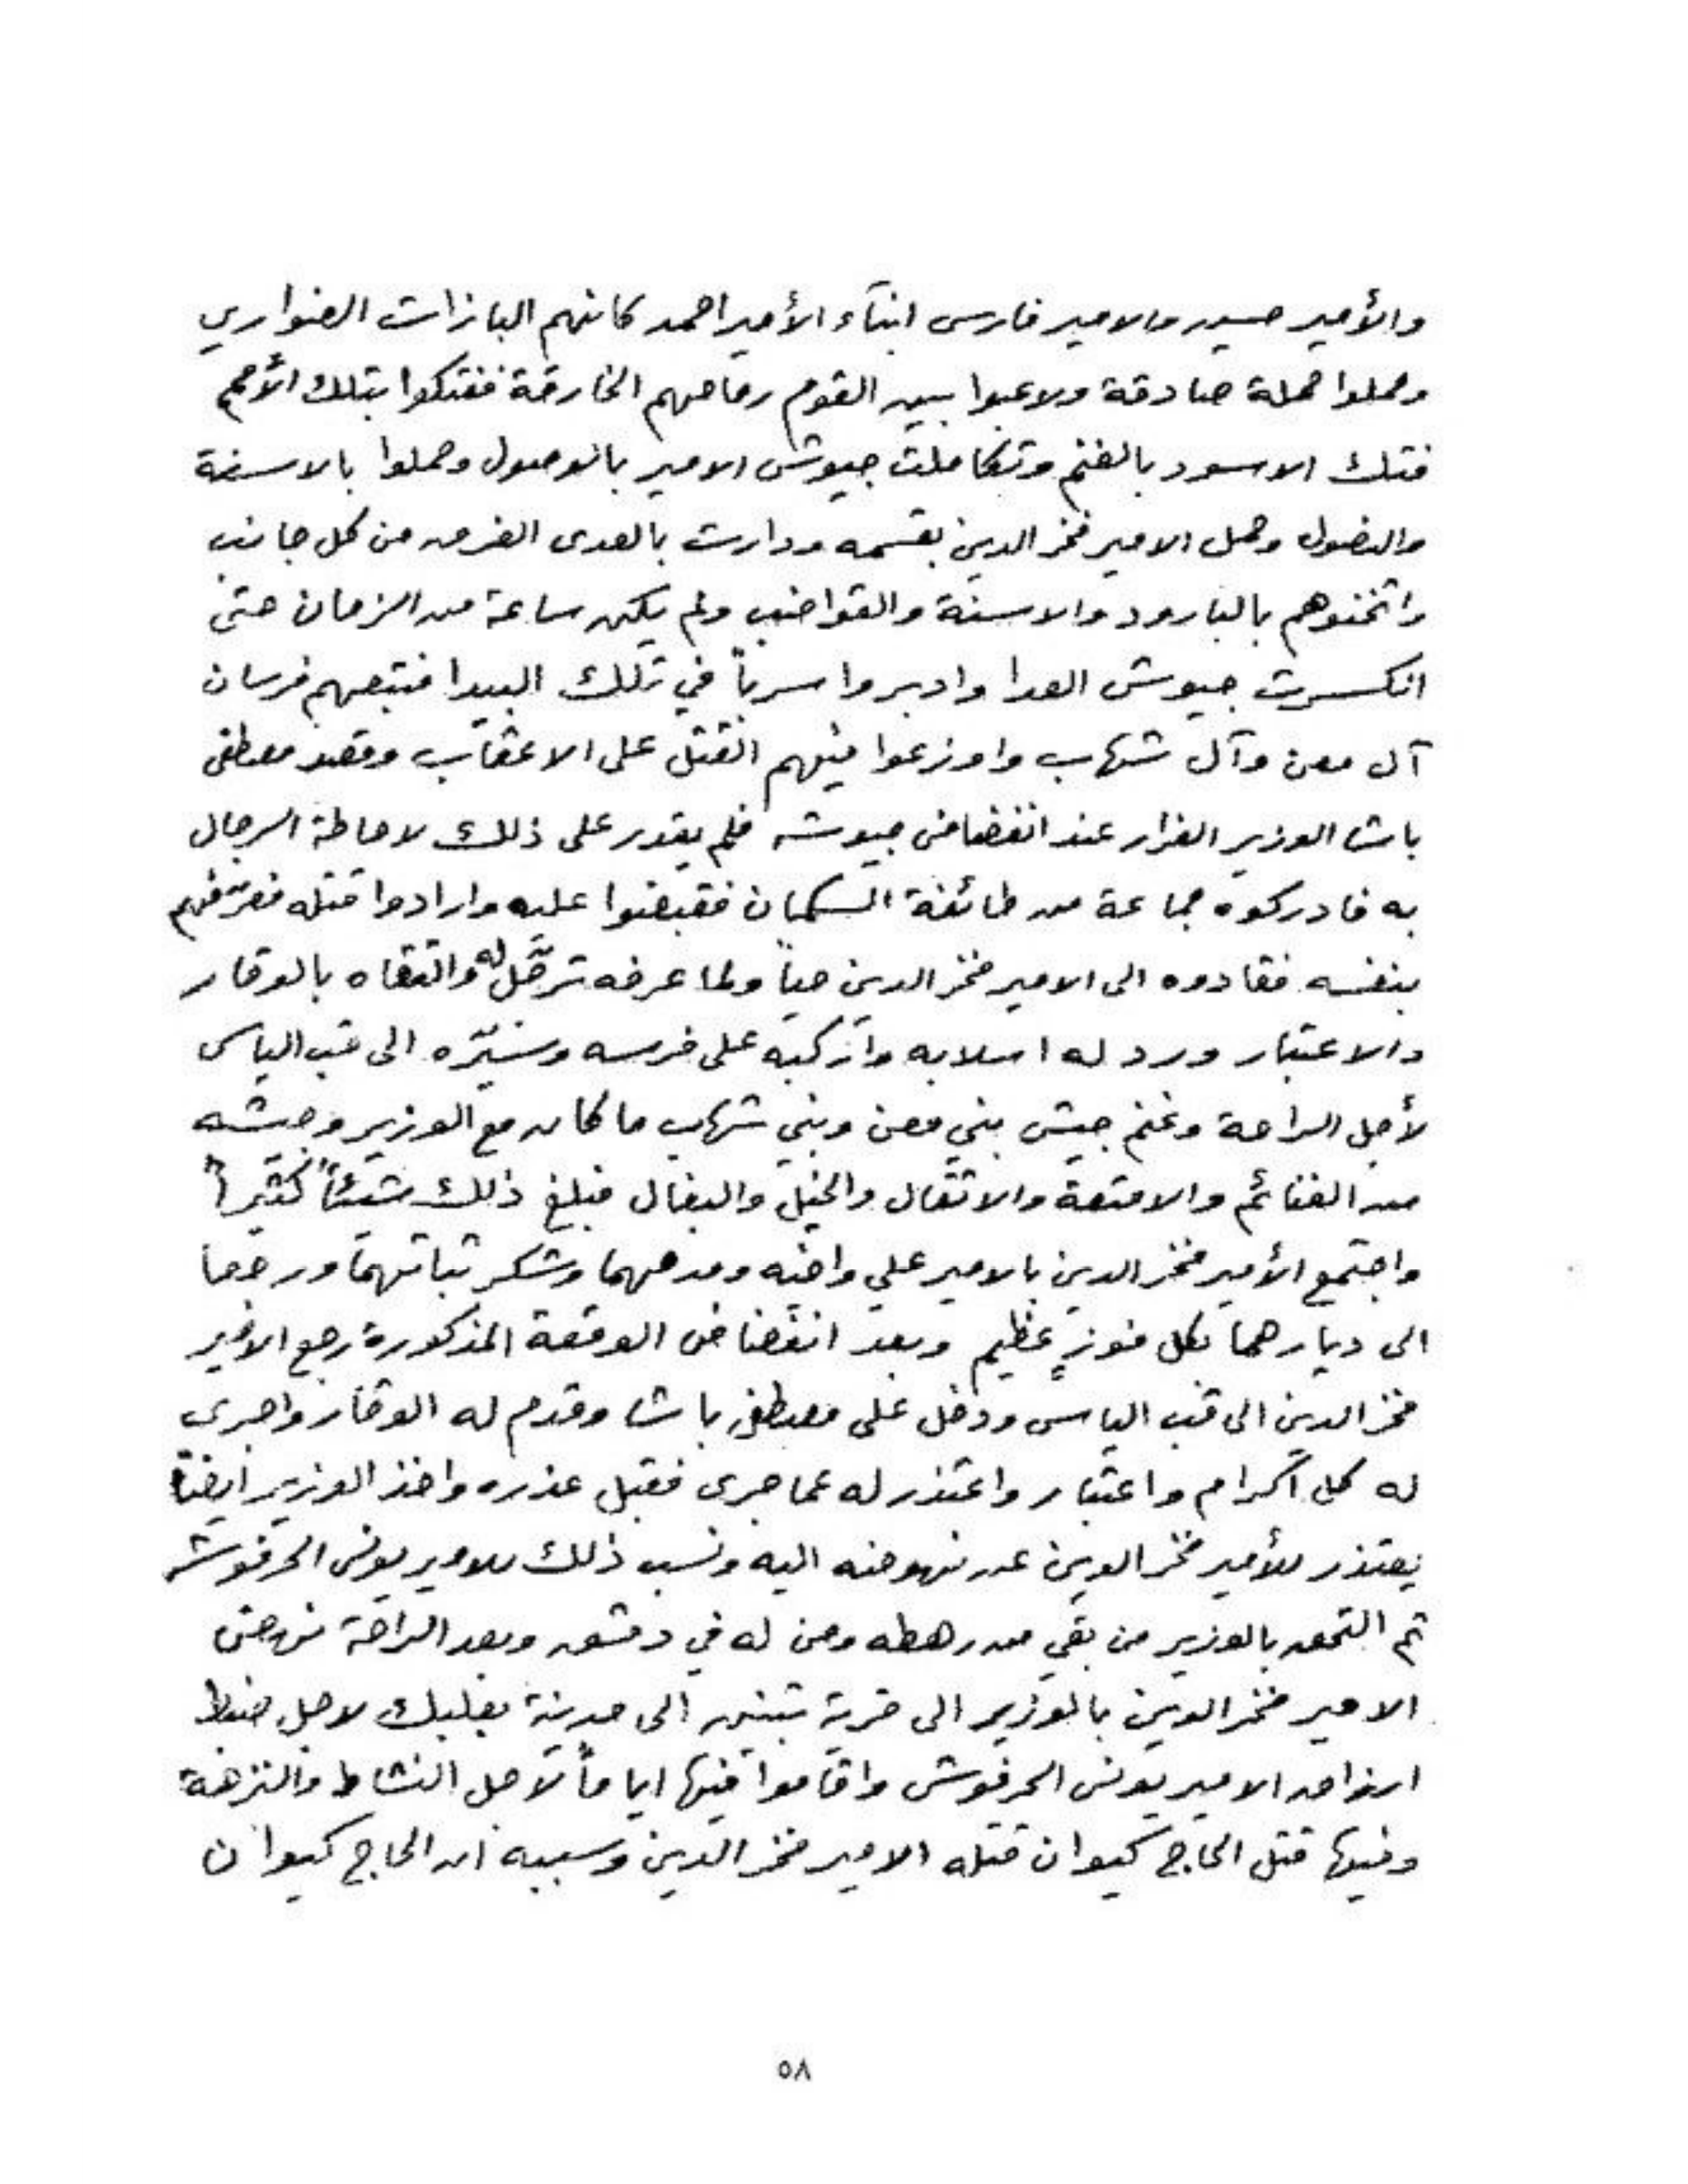 والأمير حسين والامير فارس ابنآء الأمير احمد كانهم البازات الضواري
وحملوا حملة صادقة ولاعبوا بين القوم رماحهم الخارقة ففتكوا بتلك الأمم
فتك الاسود بالغنم وتكاملت جيوش الامير بالوصول وحملوا بالاسنة
والنصول وحمل الامير فخر الدين بقسمه ودارت بالعدى الفرق من كل جانب
واثخنوهم بالبارود والاسنة والقواضب ولم يكن ساعة من الزمان حتى
انكسرت جيوش العدا وادبروا سرباً في تلك البيدا فتبعهم فرسان
آل معن وآل شهاب واوزعوا فيهم القتل على الاعقاب وقصد مصطفى
باشا الوزير الفرار عند انفضاض جيوشه فلم يقدر على ذلك لاحاطة الرجال
به فادركوه جماعة من طائفة السكمان فقبضوا عليه وارادوا قتله فعرّفهم
بنفسه فقادوه الى الامير فخر الدين حياً ولما عرفه ترجَّل له والتقاه بالوقار
والاعتبار ورد له اسلابه واركبه على فرسه وسيّره الى قب الياس
لأجل الراحة وغنم جيش بني معن وبني شهاب ما كان مع الوزير وجيشه
من الغنائم والامتعة والاثقال والخيل والبغال فبلغ ذلك شيئاً كثيراً
واجتمع الأمير فخر الدين بالامير علي واخيه ومدحهما وشكر ثباتهما ورجعا
الى ديارهما بكل فوزٍ عظيم وبعد انقضاض الوقعة المذكورة رجع الامير
فخر الدين الى قب الياس ودخل على مصطفى باشا وقدم له الوقار واجرى
له كل اكرام واعتبار واعتذر له عما جرى فقبل عذره واخذ الوزير ايضاً
يعتذر للأمير فخر الدين عن نهوضه اليه ونسب ذلك للامير يونس الحرفوش
ثم التحق بالوزير من بقي من رهطه ومن له في دمشق وبعد الراحة نهض
الامير فخر الدين بالوزير الى قرية تبنين الى مدينة بعلبك لاجل ضبط
ارزاق الامير يونس الحرفوش واقاموا فيها اياماً لاجل النشاط والنزهة
وفيها قتل الحاج كيوان قتله الامير فخر الدين وسببه ان الحاج كيوان
٥٨